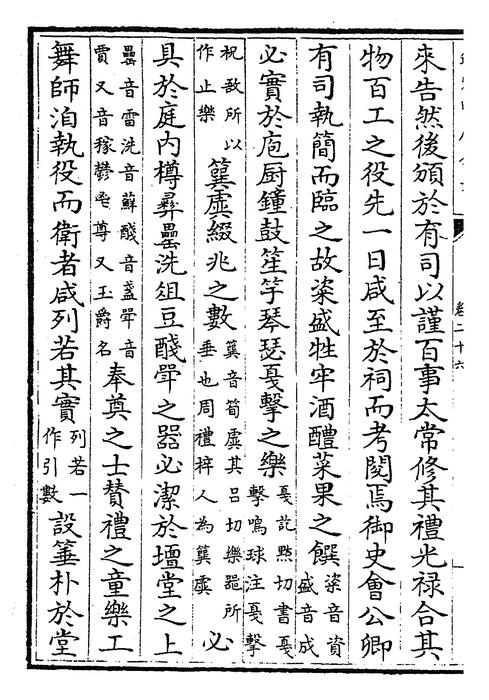 卷二十六
來告然後頒於有司以謹百事太常修其禮光禄合其
物百工之役先一日咸至於祠而考閱焉御史會公卿
有司執簡而臨之故粢盛牲牢酒醴菜果之饌粢音資盛音成
必實於庖厨鐘鼓笙竽琴瑟戛擊之樂戛訖黠切書戛擊鳴球注戛擊
柷敔所以作止樂簨虡綴兆之數簨音筍虡其吕切樂噐所垂也周禮梓人為簨虡必
具於庭内樽彛罍洗俎豆醆斝之器必潔於壇堂之上
罍音雷洗音蘇醆音盞斝音賈又音稼鬱鬯尊又玉爵名奉奠之士賛禮之童樂工
舞師洎執役而衛者咸列若其實列若一作引數設箠朴於堂